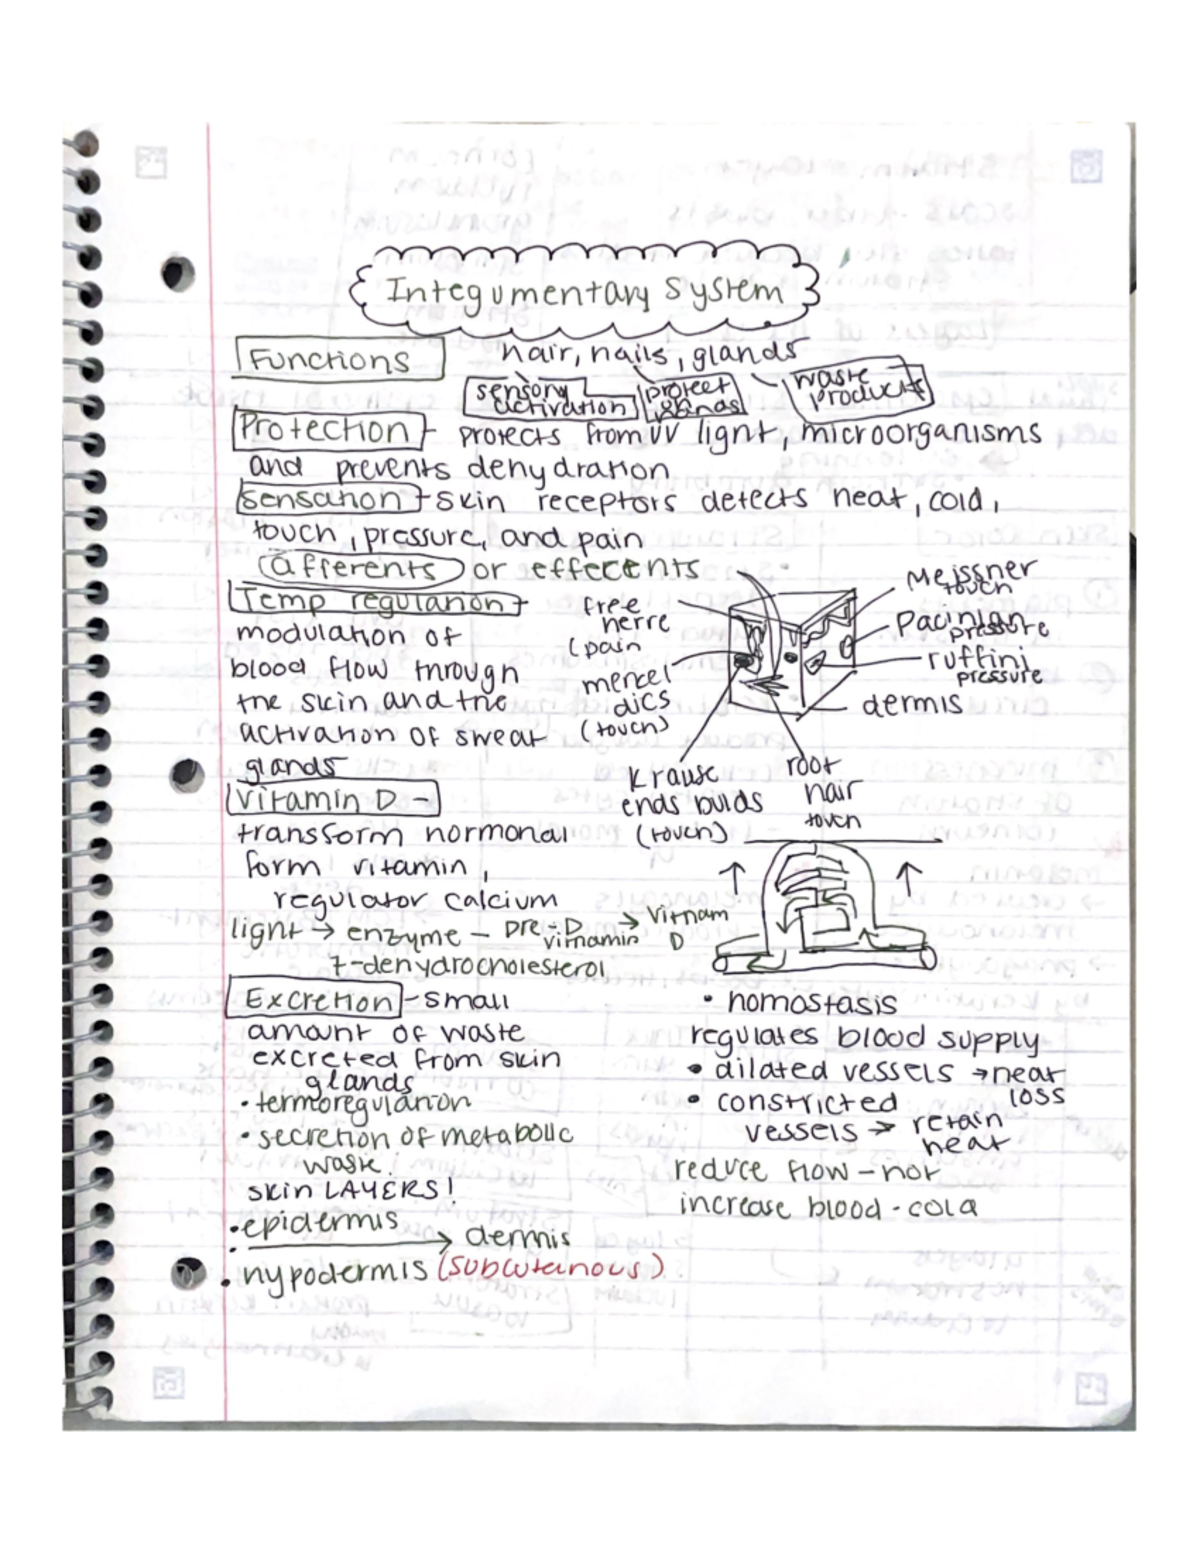 Integumentary System
Functions
hair, nails, glands
sensory activation
protect glands
waste products
Protection - protects from UV light, microorganisms
and prevents dehydration
Sensation - skin receptors detects heat, cold,
touch, pressure, and pain
afferents or effecents
Temp regulation -
modulation of
blood flow through
the skin and the
activation of sweat
glands
free nerve
(pain
mercel
dics
(touch)
Krause
ends bulds
(touch)
root
hair
touch
Meissner
touch
Pacinian
pressure
ruffini
pressure
dermis
Vitamin D -
transform hormonal
form vitamin,
regulator calcium
light → enzyme - pre-D vitnamin → Vitnam D
7-dehydrocholesterol
Excretion - small
amount of waste
excreted from skin
glands
• termoregulation
• secretion of metabolic
waste.
skin LAYERS!
• epidermis
→ dermis
• hypodermis (subcuteinous)
• homostasis
regulates blood supply
• dilated vessels → heat
loss
• constricted
vessels → retain
heat
reduce flow - hot
increase blood - cold